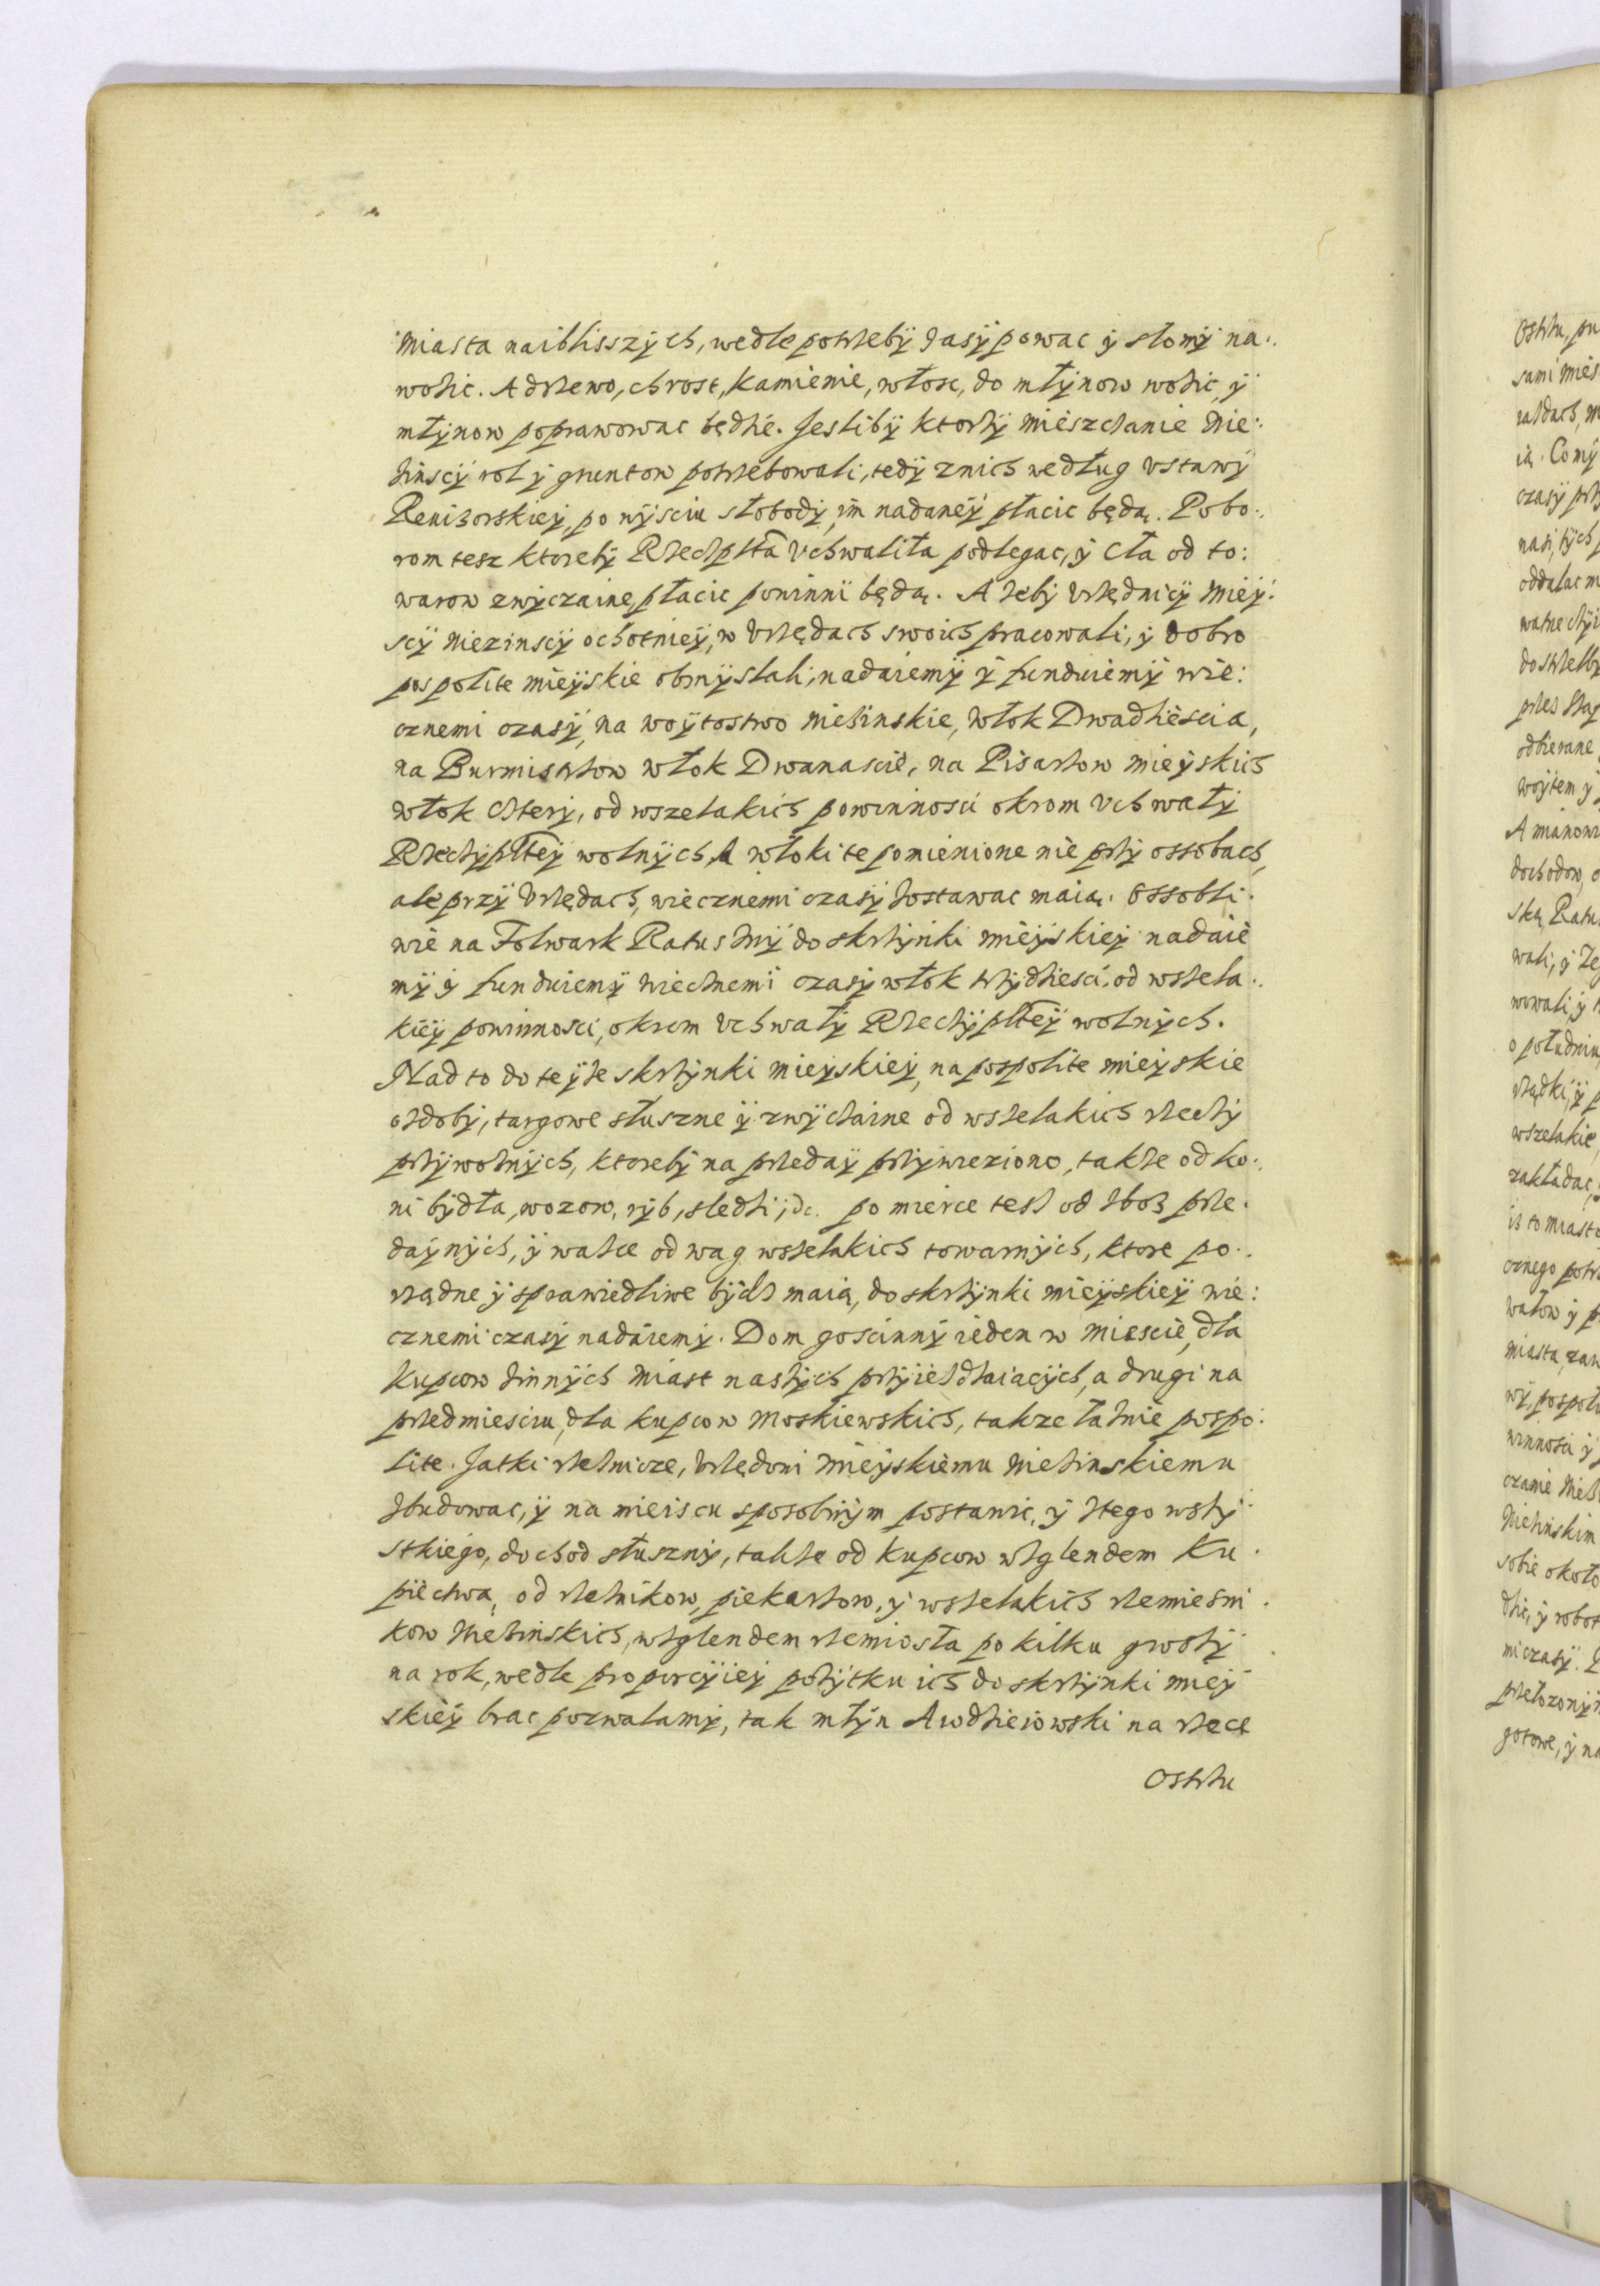 miasta naiblisszÿch, wedle potrzebÿ zasÿpowac ÿ słomÿ na:
wozic. A drzewo, chrost, kamienie, włosc, do młÿnow wozic, ÿ
młÿnow poprawowac będzie. Jeslibÿ ktorzÿ mieszczanie Nie:
zinscÿ rol ÿ gruntow potrzebowali, tedÿ znich według vstawÿ
Rewizorskieÿ, po wÿsciu słobodÿ im nadaneÿ płacic będą. Pobo:
rom tesz ktorebÿ Rzeczplta vchwaliła podlegac, ÿ Cła od to:
warow zwÿczaine płacic powinni będą. A zebÿ vrzędnicÿ mieÿ:
scÿ niezinscÿ ochotnieÿ, w vrzędach swoich pracowali, ÿ dobro
pospolite mieÿskie obmÿslali, nadaiemÿ ÿ funduiemÿ wie:
cznemi czasÿ, na woÿtostwo niezinskie, włok Dwadziescia,
na Burmistrzow włok Dwanascie, na Pisarzow mieÿskich
włok czterÿ, od wszelakich powinnosci okrom vchwałÿ
Rzeczÿplteÿ wolnÿch, A włoki te pomienione nie przÿ ossobach,
ale przÿ vrzędach, wiecznemi czasÿ zostawac maią. Ossobli:
wie na Folwark Ratusznÿ do skrzÿnki mieÿskieÿ nadaie
mÿ ÿ funduiemÿ wiecznemi czasÿ włok trzÿdziesci, od wszela:
kieÿ powinnosci, okrom vchwałÿ Rzeczÿplteÿ wolnÿch.
Nad to do teÿze skrzÿnki mieÿskieÿ, na pospolite mieÿskie
ozdobÿ, targowe słuszne ÿ zwÿczaine od wszelakich rzeczÿ
przÿwoznÿch, ktorebÿ na przedaÿ przÿwieziono, takze od ko:
ni bÿdła, wozow, rÿb, sledzi, &c. po mierce tesz od zboz prze:
daÿnÿch, ÿ wazce od wag wszelakich towarnÿch, ktore po:
rządne ÿ sprawiedliwe bÿdz maią, do skrzÿnki mieÿskieÿ wie:
cznemi czasÿ nadaiemÿ. Dom goscinnÿ ieden w miescie, dla
kupcow zinnÿch miast naszÿch przÿiezdzaiacÿch, a drugi na
przedmiesciu, dla kupcow Moskiewskich, takze łaznie pospo:
lite. Jatki rzeznicze, vrzędowi mieÿskiemu niezinskiemu
zbudowac, ÿ na mieiscu sposobnÿm postawic, ÿ ztego wszÿ
stkiego, dochod słusznÿ, takze od kupcow wzglendem ku:
piectwa, od rzeznikow, piekarzow, ÿ wszelakich rzemiesni:
kow niezinskich, wzglendem rzemiosła po kilku groszÿ
na rok, wedle proporcÿieÿ pozÿtku ich do skrzÿnki mieÿ
skieÿ brac pozwalamÿ, tak młÿn Awdzieiowski na rzece
Ostrzu